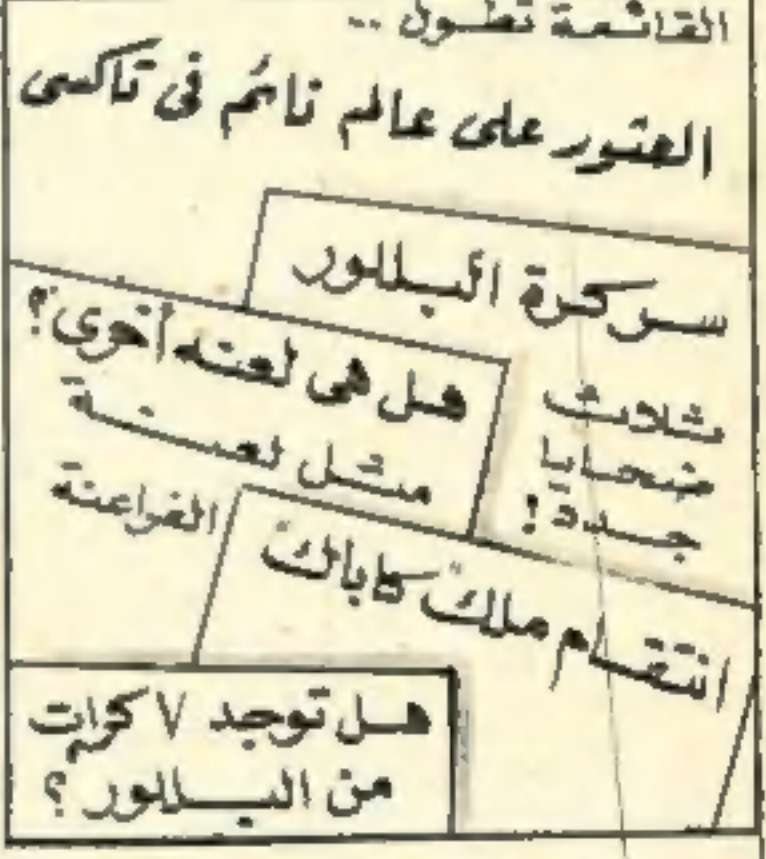 القائمة تطول ..
العثور على عالم نائم فى تاكسى
سر كرة البللور
ثلاث
ضحايا
جدد !
هل هى لعنه أخرى ؟
مثل لعنة
الفراعنة
انتقام ملك كاباك
هل توجد ٧ كرات
من البللور ؟